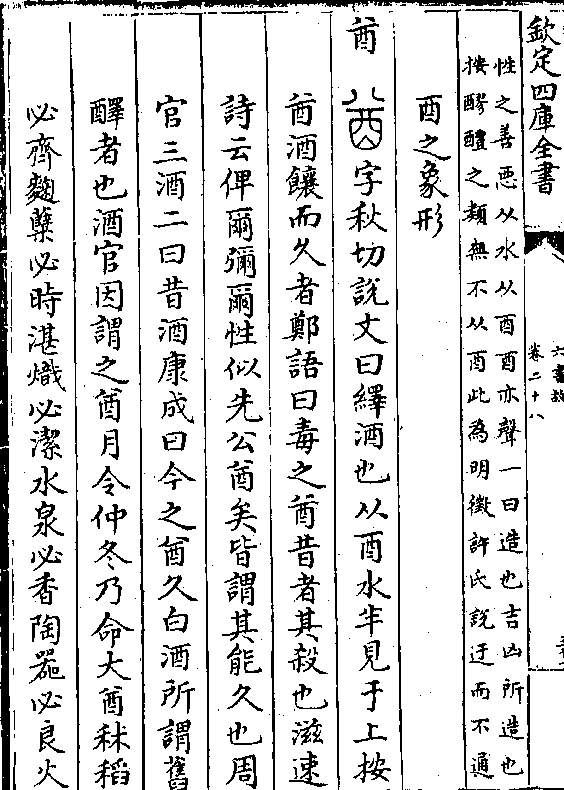 欽定四庫全書
六書故
卷二十八
性之善惡从水从酉酉亦聲一曰造也吉凶所造也
按醪醴之類無不从酉此為明徵許氏說迂而不通
酉之象形
酋 字秋切説文曰繹酒也从酉水半見于上按
酋酒釀而久者鄭語曰毒之酋昔者其殺也滋速
詩云俾爾彌爾性似先公酋矣皆謂其能久也周
官三酒二曰昔酒康成曰今之酋久白酒所謂舊
醳者也酒官因謂之酋月令仲冬乃命大酋秫稻
必齊麴糵必時湛熾必潔水泉必香陶器必良火